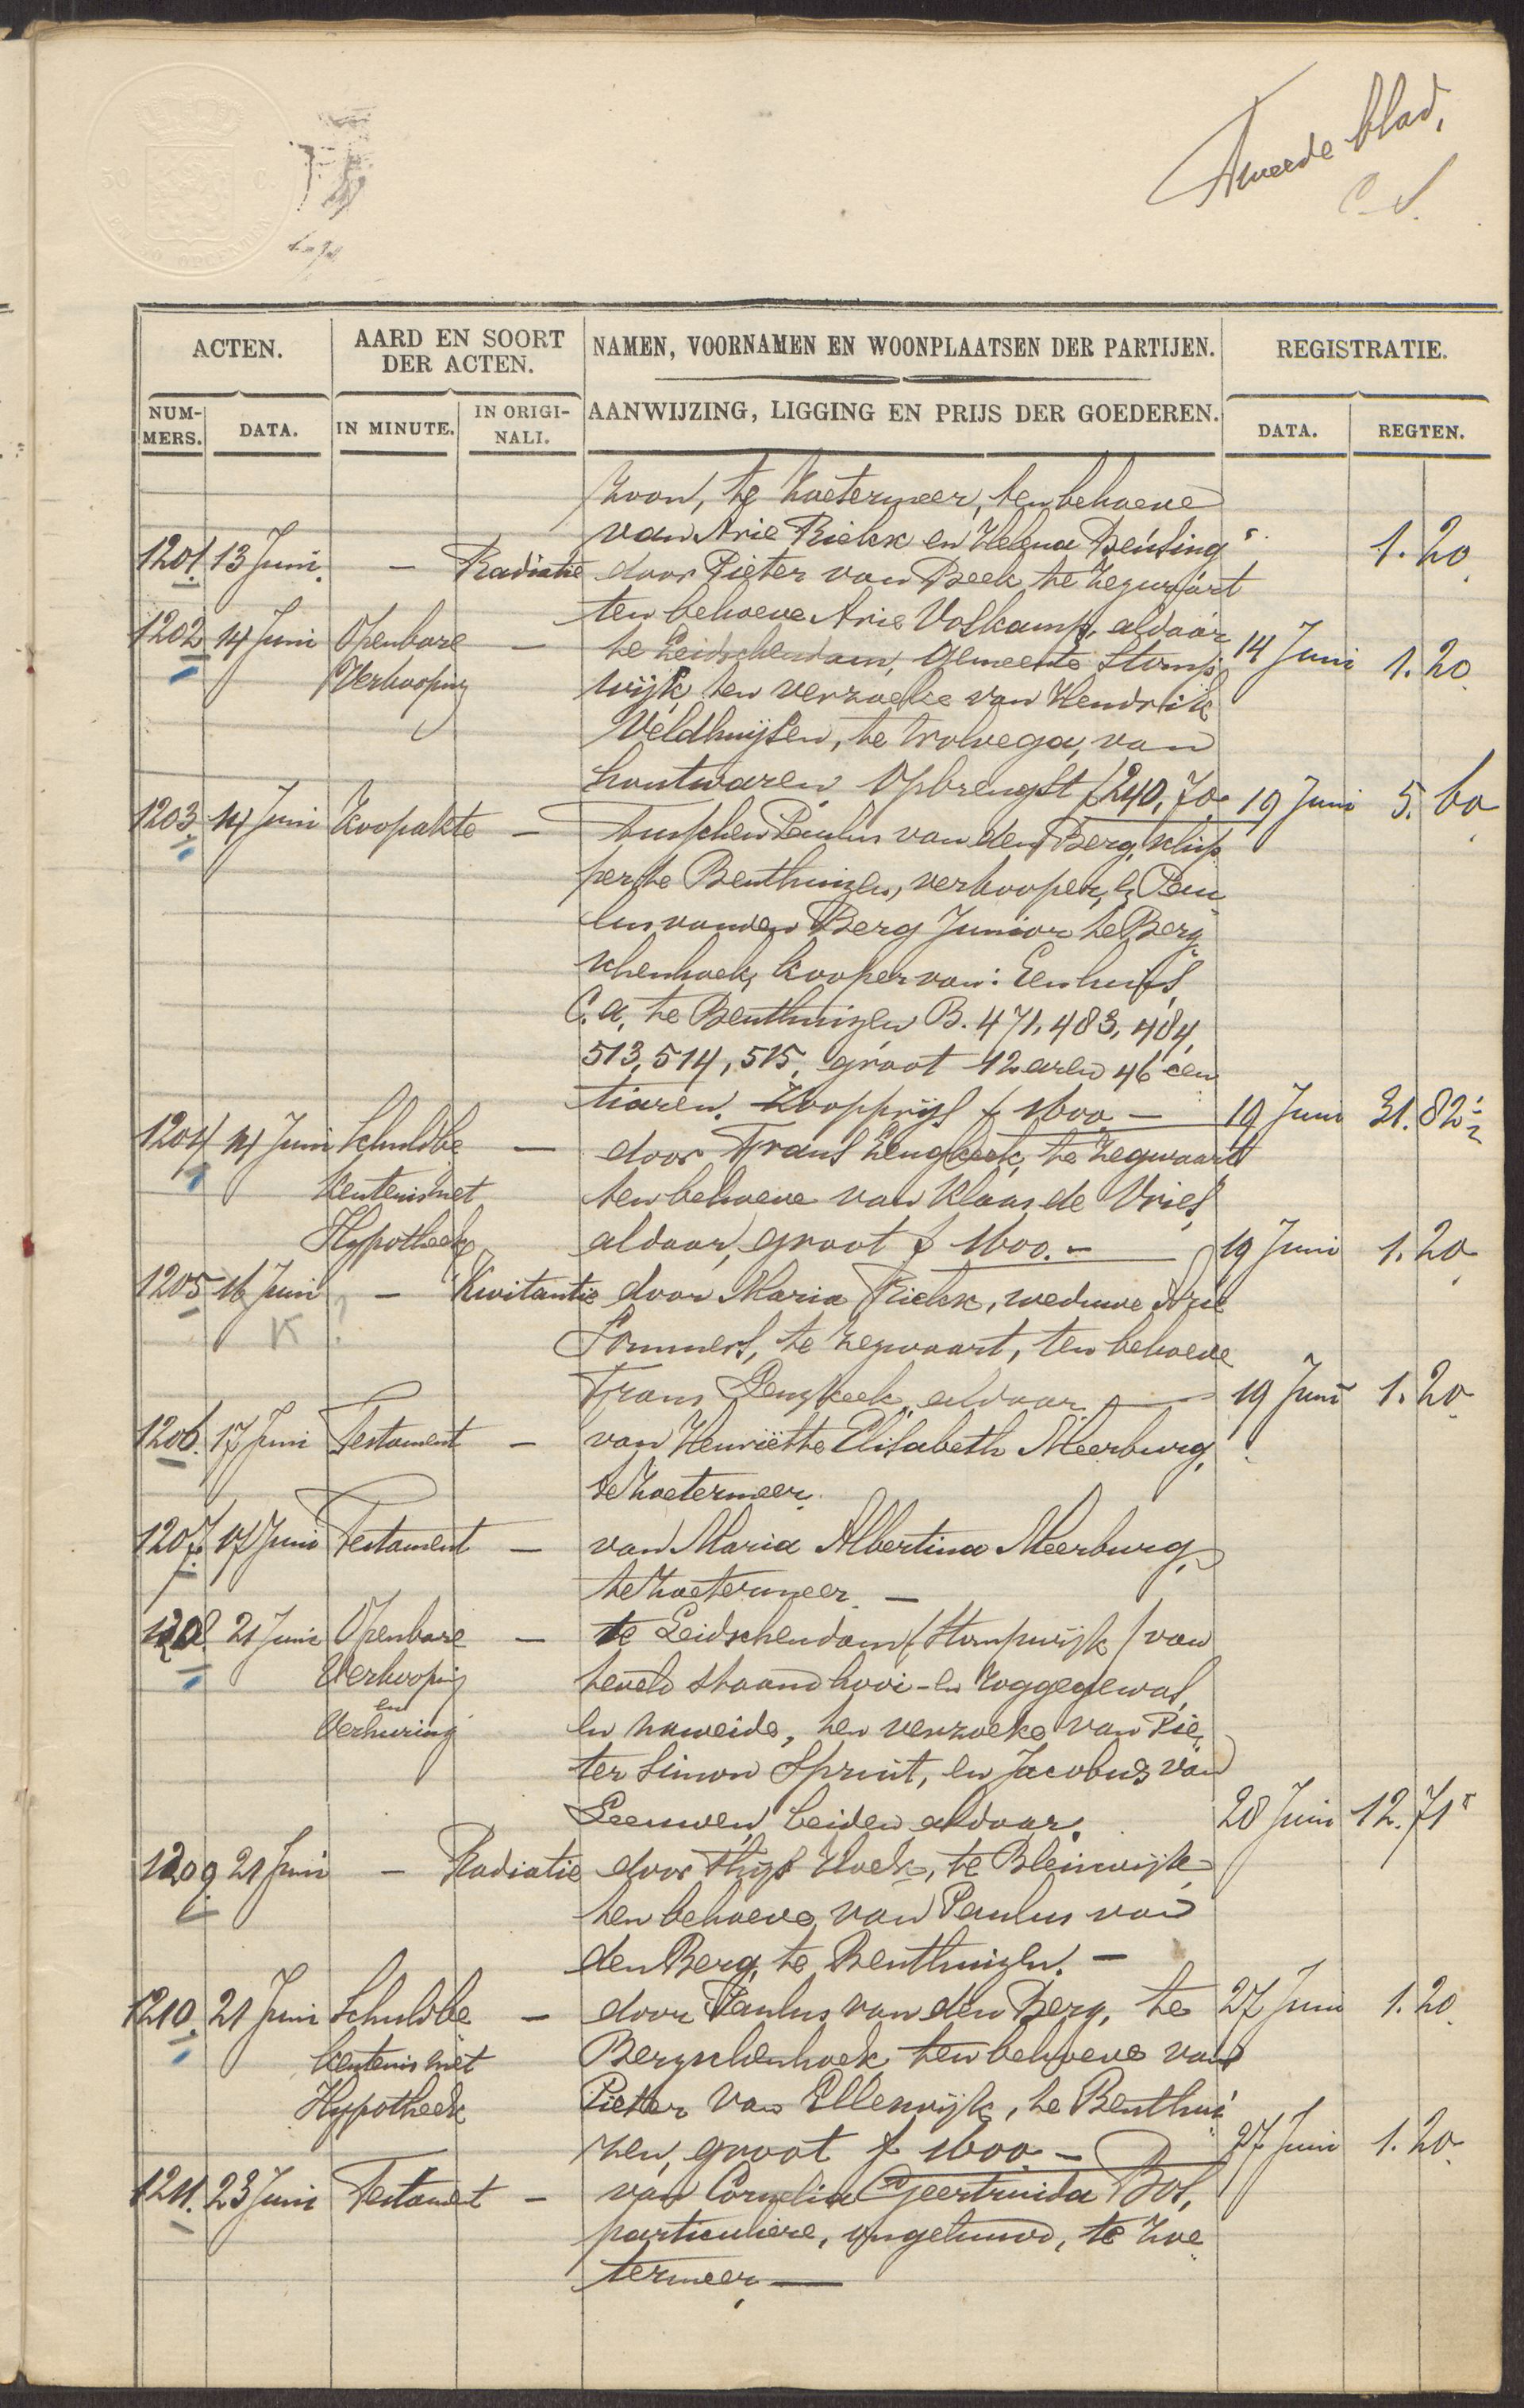 Tweede blad,
C. S.
50 C.
ACTEN.
AARD EN SOORT
DER ACTEN.
NAMEN, VOORNAMEN EN WOONPLAATSEN DER PARTIJEN.
REGISTRATIE.
NUM-
MERS.
DATA.
IN MINUTE.
IN ORIGI-
NALI.
AANWIJZING, LIGGING EN PRIJS DER GOEDEREN.
DATA.
REGTEN.
zoon, te Zoetermeer, ten behoeve
van Arie Riekx en Helena Bensing 1.20
1201. 13 Juni. — Radiatie door Pieter van Beek te Zegwaart
ten behoeve Arie Volkamp, aldaar
1202 14 Juni Openbare — te Leidschendam, Gemeente Stomp 14 Juni 1.20
Verkooping wijk, ten verzoeke van Hendrik
Veldhuijsen, te Wolvega, van
houtwaren. Opbrengst f 240,70. 19 Juni 5.60
1203 14 Juni Koopakte — Tusschen Paulus van den Berg, schip
per te Benthuizen, verkooper, & Pau
lus van den Berg Junior te Berg
schenhoek, kooper van: Een huis
c.a. te Benthuizen B. 471, 483, 484,
513, 514, 515, groot 12 aren 46 cen
tiaren. Koopprijs f 1600.— 19 Juni 31.82
1204 14 Juni Schuldbe — door Frans Zengkeek, te Zegwaart
kentenis met ten behoeve van Klaas de Vries,
Hypotheek aldaar, groot f 1600.— 19 Juni 1.20
1205 16 Juni — Kwitantie door Maria Riekx, weduwe Arie
K ? Pommers, te Zegwaart, ten behoeve
Frans aldaar — 19 Juni 1.20
1206. 17 Juni Testament — van Henriëtte Elisabeth Meerburg,
te Zoetermeer.
1207. 17 Juni Testament — van Maria Albertina Meerburg,
te Zoetermeer. —
1208. 21 Juni Openbare — te Leidschendam (Stompwijk) van
Verkooping te veld staand hooi- en roggegewas,
en
Verhuring en naweide, ten verzoeke van Pie
ter Simon Spruit, en Jacobus van
Leeuwen, beiden aldaar. 28 Juni 12.71
1209 21 Juni — Radiatie door Thijs Hoek, te Bleiswijk
ten behoeve van Paulus van
den Berg, te Benthuizen. —
1210. 21 Juni Schuldbe — door Paulus van den Berg, te 27 Juni 1.20
kentenis met Bergschenhoek ten behoeve van
Hypotheek Pieter van Ellenwijk, te Benthui
zen, groot f 1600.— 27 Juni 1.20
1211. 23 Juni Testament — van Cornelia Geertruida Bos,
particuliere, ongehuwd, te Zoe
termeer. —